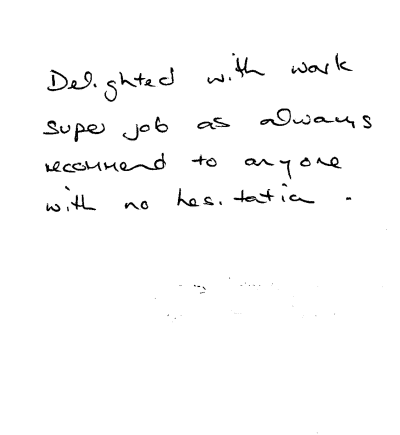 Delighted with work
super job as always
recommend to anyone
with no hesitation.